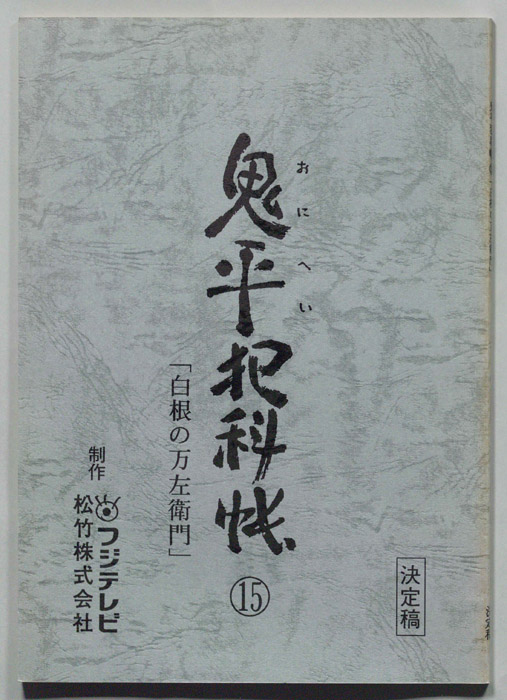 決定稿
おにへい
鬼平犯科帳
⑮
「白根の万左衛門」
制作
フジテレビ
松竹株式会社